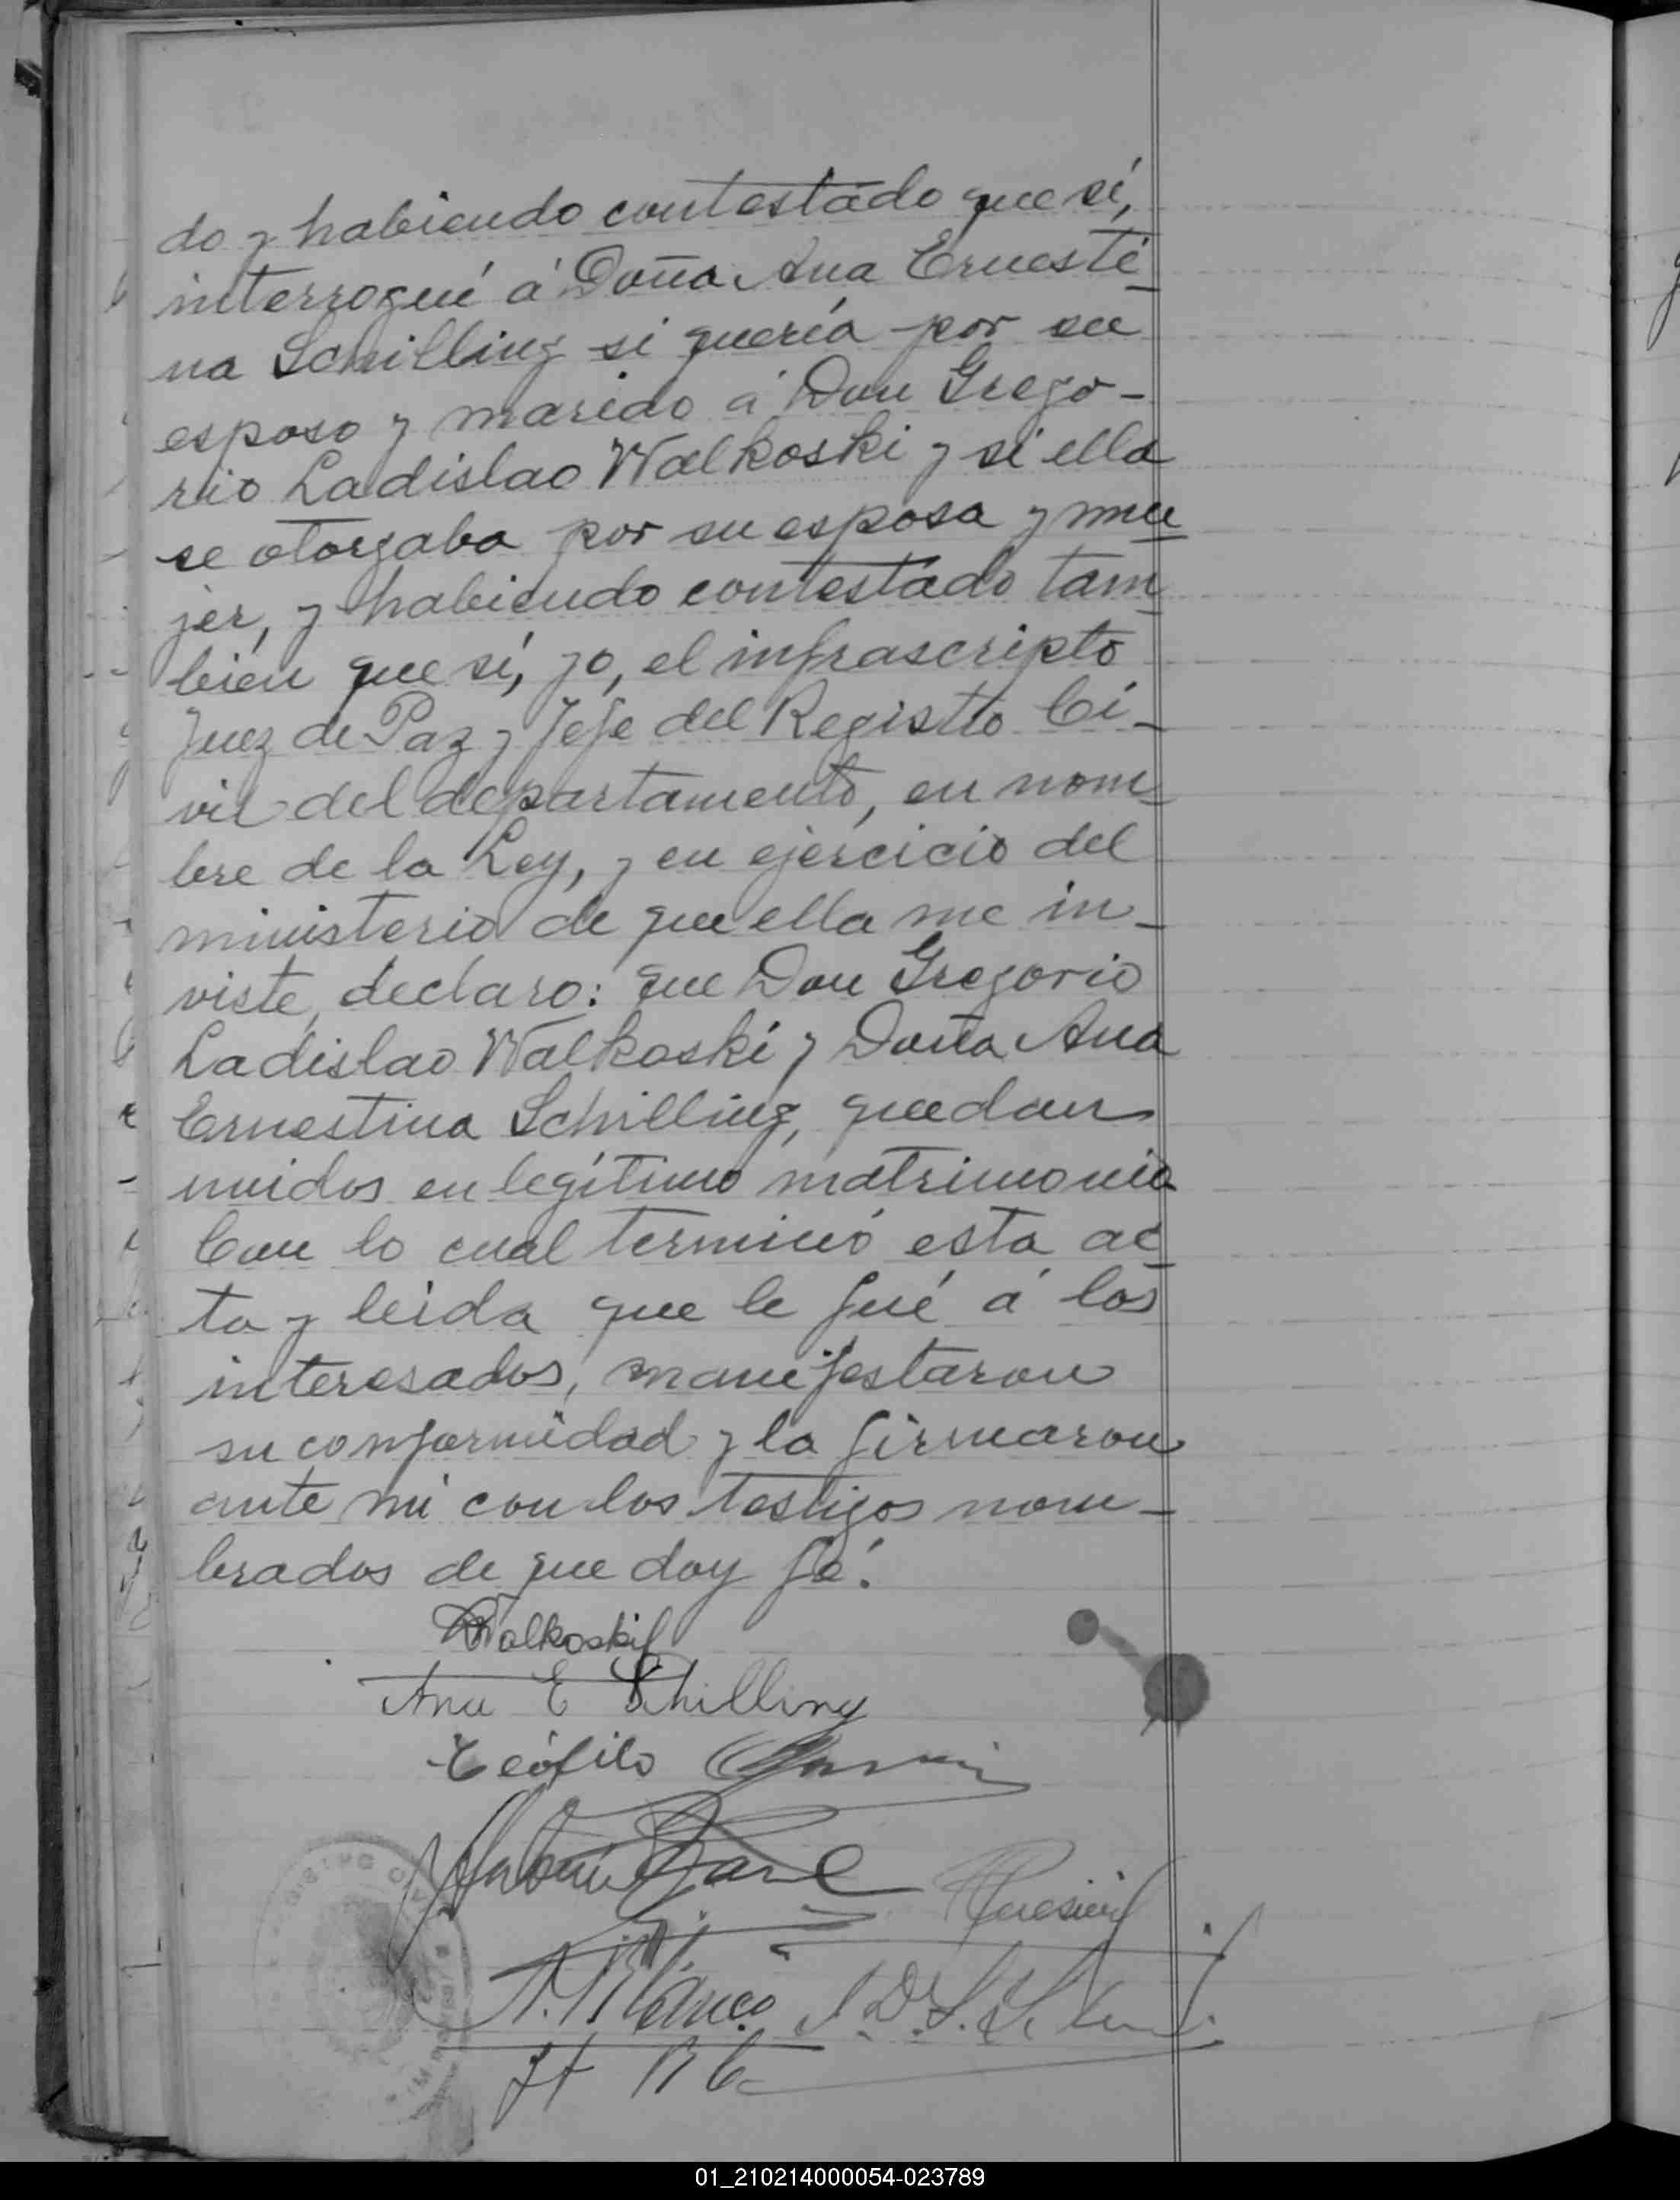 do y habiendo contestado que sí,
interrogué á Doña Ana Ernesti
na Schilling si quería por su
esposo y marido á Don Grego-
rio Ladislao Walkoski y si ella
se otorgaba por su esposa y mu
jer, y habiendo contestado tam
bien que sí, yo, el infrascripto
Juez de Paz y Jefe del Registro Ci-
vil del departamento, en nom
bre de la Ley, y en ejercicio del
ministerio de que ella me in-
viste, declaro: que Don Gregorio
Ladislao Walkoski y Doña Ana
Ernestina Schilling, quedan
unidos en legítimo matrimonio
Con lo cual terminó esta ac
ta y leida que le fué á los
interesados, manifestaron
su conformidad y la firmaron
ante mi con los testigos nom-
brados de que doy fé.
Walkoski
Ana E Schilling
Teófilo
Blanco
01_210214000054-023789